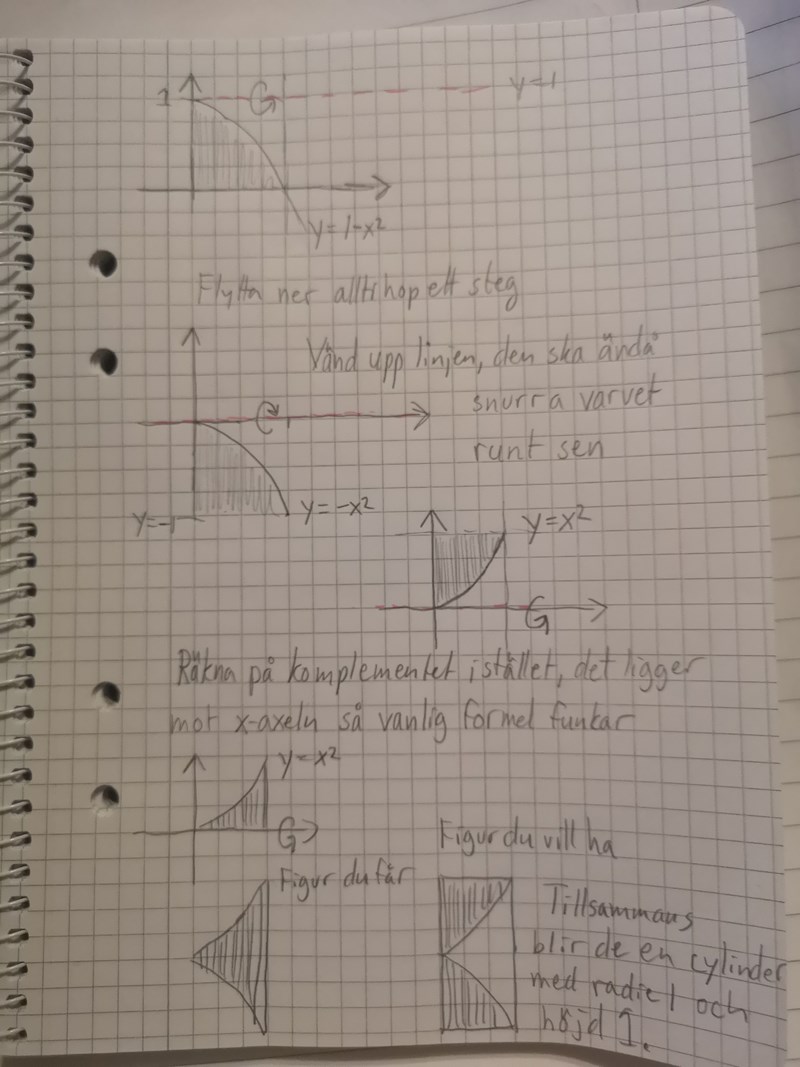 1
G
y=1
y=1-x²
Flytta ner alltihop ett steg
Vänd upp linjen, den ska ändå
snurra varvet
runt sen
y=-1
y=-x²
y=x²
Räkna på komplementet istället, det ligger
mot x-axeln så vanlig formel funkar
y=x²
Figur du vill ha
Figur du får
Tillsammans
blir de en cylinder
med radie 1 och
höjd 1.